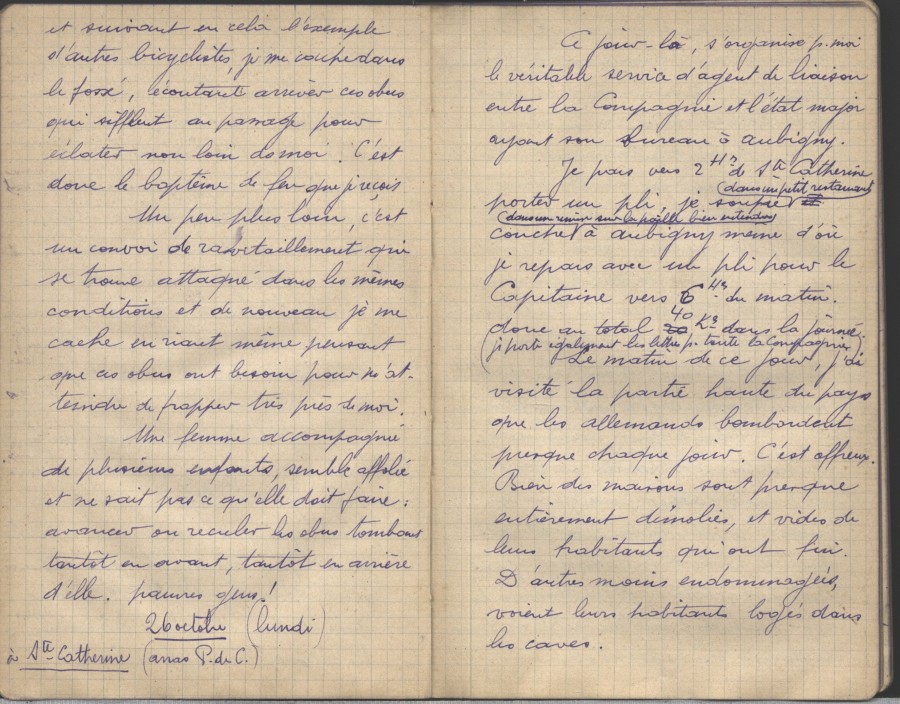 et suivant en cela l'exemple
d'autres bicyclistes, je me couche dans
le fossé, écoutant arriver ces obus
qui sifflent au passage pour
éclater non loin de moi. C'est
donc le baptème de feu que je reçois
Un peu plus loin, c'est
un convoi de ravitaillement qui
se trouve attaqué dans les mêmes
conditions et de nouveau je me
cache en riant même pensant
que ces obus ont besoin pour m'at-
teindre de frapper très près de moi.
Une femme accompagnié
de plusieurs enfants, semble affolié
et ne sait pas ce qu'elle doit faire :
avancer ou reculer les obus tombant
tantôt en avant, tantôt en arrière
d'elle. pauvres gens !
26 octobre (lundi)
à Ste Catherine (arras P. de C.)
Ce jour-là, s'organise p. moi
le véritable service d'agent de liaison
entre la Compagnie et l'état major
ayant son bureau à aubigny.
Je pars vers 2 Hs de Ste Catherine
(dans un petit restaurant
porter un pli, je soupe et
(dans un sur la paille bien entendu)
couche à aubigny même d'où
je repars avec un pli pour le
Capitaine vers 6 Hs du matin.
40
donc au total 20 Ks dans la journée.
(je porte également les lettres p. toute la Compagnie)
Le matin de ce jour, j'ai
visité la partie haute du pays
que les allemands bombardent
presque chaque jour. C'est affreux.
Bien des maisons sont presque
entièrement démolies, et vides de
leurs habitants qui ont fui.
D'autres moins endommagées,
voient leurs habitants logés dans
les caves.